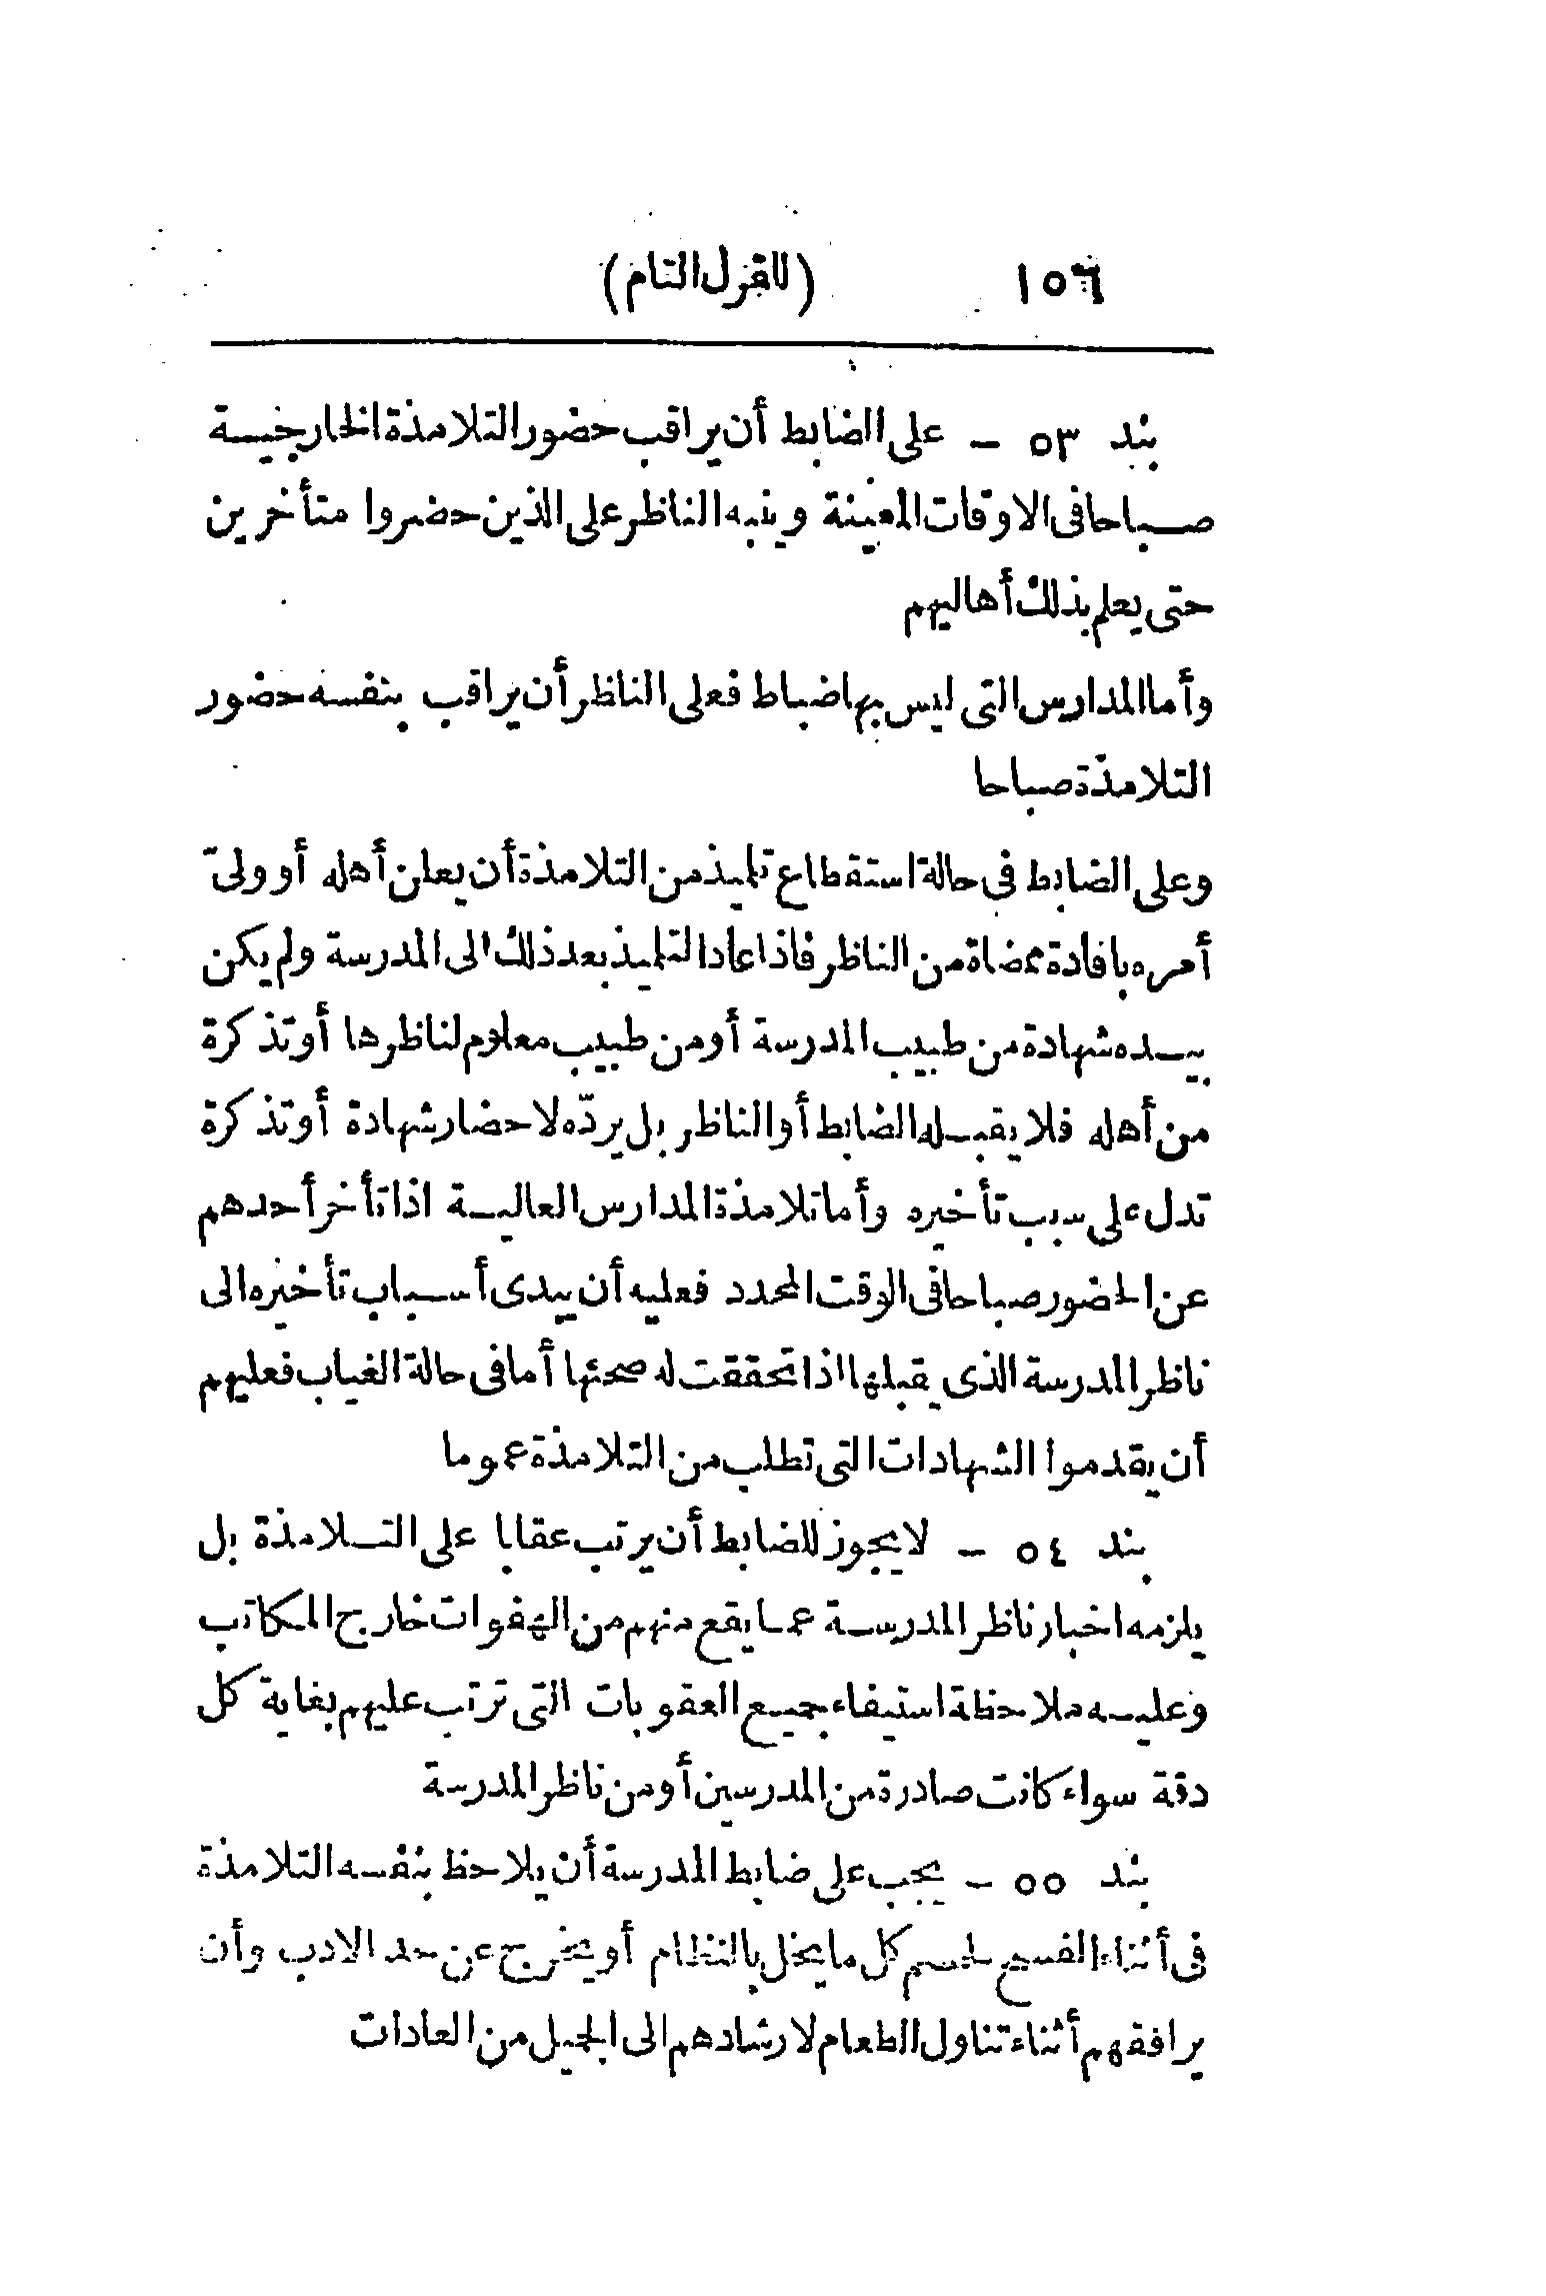 ١٥٦ (القول التام)
بند ٥٣ - على الضابط أن يراقب حضور التلامذة الخارجيـة
صباحا فى الاوقات المعينة وينبه الناظر على الذين حضروا متأخرين
حتى يعلم بذلك أهاليهم
وأما المدارس التى ليس بها ضباط فعلى الناظر أن يراقب بنفسه حضور
التلامذة صباحا
وعلى الضابط فى حالة استقطاع تلميذ من التلامذة أن يعلن أهله أو ولىّ
أمره بافادة ممضاة من الناظر فاذا عاد التلميذ بعد ذلك الى المدرسة ولم يكن
بيـده شهادة من طبيب المدرسة أو من طبيب معلوم لناظرها أو تذكرة
من أهله فلا يقبـله الضابط أو الناظر بل يردّه لاحضار شهادة أو تذكرة
تدل على سبب تأخيره وأما تلامذة المدارس العاليـة اذا تأخر أحدهم
عن الحضور صباحا فى الوقت المحدد فعليه أن يبدى أسـباب تأخيره الى
ناظر المدرسة الذى يقبلها اذا تحققت له صحتها أما فى حالة الغياب فعليهم
أن يقدموا الشهادات التى تطلب من التلامذة عموما
بند ٥٤ - لا يجوز للضابط أن يرتب عقابا على التـلامذة بل
يلزمه اخبار ناظر المدرسـة عمـا يقع منهم من الهفوات خارج المكاتب
وعليـه ملاحظة استيفاء جميـع العقوبات التى ترتب عليهم بغاية كل
دقة سواء كانت صادرة من المدرسين أو من ناظر المدرسة
بند ٥٥ - يجب على ضابط المدرسة أن يلاحظ بنفسه التلامذة
فى أثناء الفسح لحسم كل ما يخل بالنظام أو يخرج عن حد الادب وأن
يرافقهم أثناء تناول الطعام لارشادهم الى الجميل من العادات